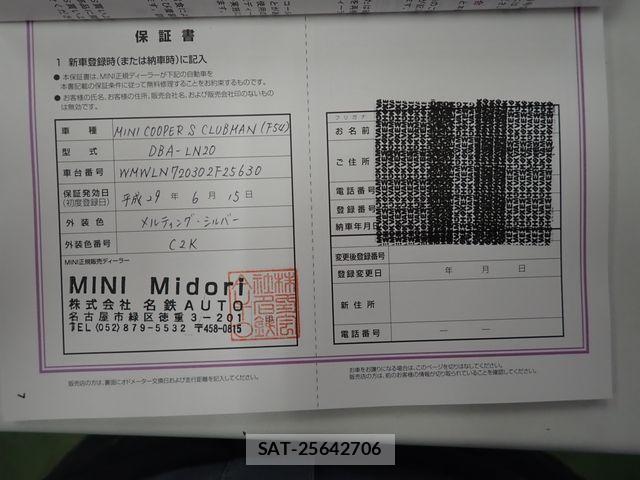 保証書
1 新車登録時(または納車時)に記入
● 本保証書は、MINI正規ディーラーが下記の自動車を
本書記載の保証条件に従って無料修理することをお約束するものです。
● お客様の氏名、お客様の住所、販売会社名、および販売会社印のないもの
は無効です。
車種 MINI COOPER S CLUBMAN (F54)
型式 DBA-LN20
車台番号 WMWLN720302F25630
保証発効日
(初度登録日) 平成29年 6月 15日
外装色 メルティング・シルバー
外装色番号 C2K
MINI正規販売ディーラー
MINI Midori
株式会社 名鉄AUTO
名古屋市緑区徳重3-201
TEL(052)879-5532 〒458-0815
販売店の方は、裏面にオドメーター交換日および走行距離を記入してください。
7
フリガナ
お名前
ご住所
電話番号
登録番号
納車年月日
変更後登録番号
登録変更日 年 月 日
新住所
電話番号 — —
お車をお譲りになる場合は、このページを切りはなしてください。
販売店の方は、前のお客様の情報が切り取られていることを確認してください。
SAT-25642706